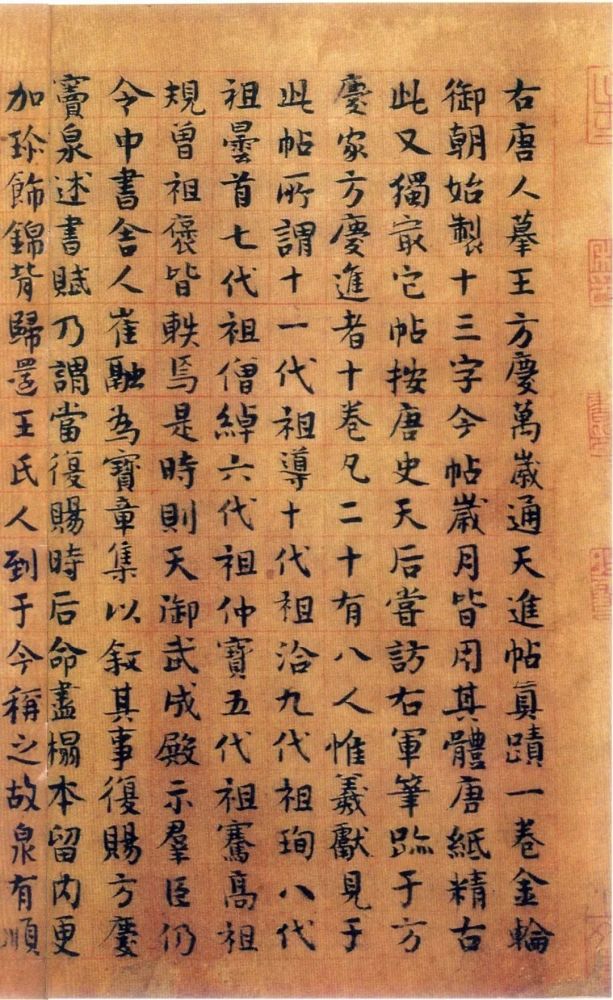 右唐人摹王方慶萬歲通天進帖真蹟一卷金輪
御朝始製十三字今帖歲月皆用其體唐紙精古
此又獨最它帖按唐史天后嘗訪右軍筆跡于方
慶家方慶進者十卷凡二十有八人惟羲獻見于
此帖所謂十一代祖導十代祖洽九代祖珣八代
祖曇首七代祖僧綽六代祖仲寶五代祖騫高祖
規曾祖褒皆軼焉是時則天御武成殿示羣臣仍
令中書舍人崔融為寶章集以叙其事復賜方慶
竇泉述書賦乃謂當復賜時后命盡榻本留內更
加珍飾錦背歸還王氏人到于今稱之故泉有順